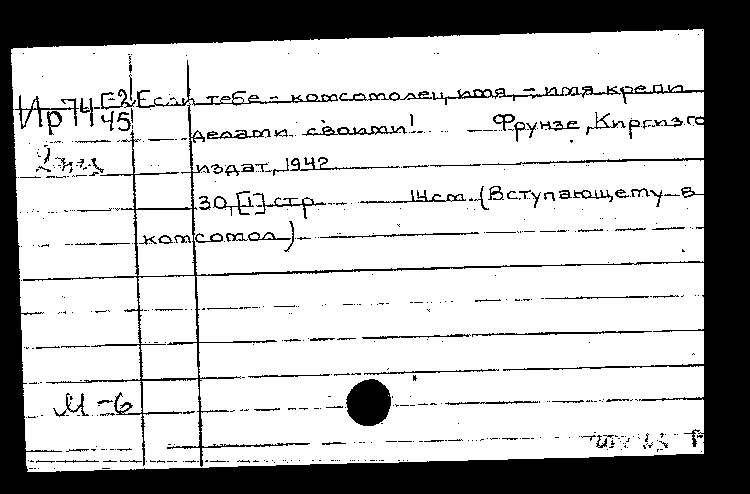 Ир74 Е-2 Если тебе - комсомолец имя, - имя крепи
45 делами своими! Фрунзе, Киргизго
издат, 1942
30, [1] стр. 14см. (Вступающему в
комсомол)
М-6